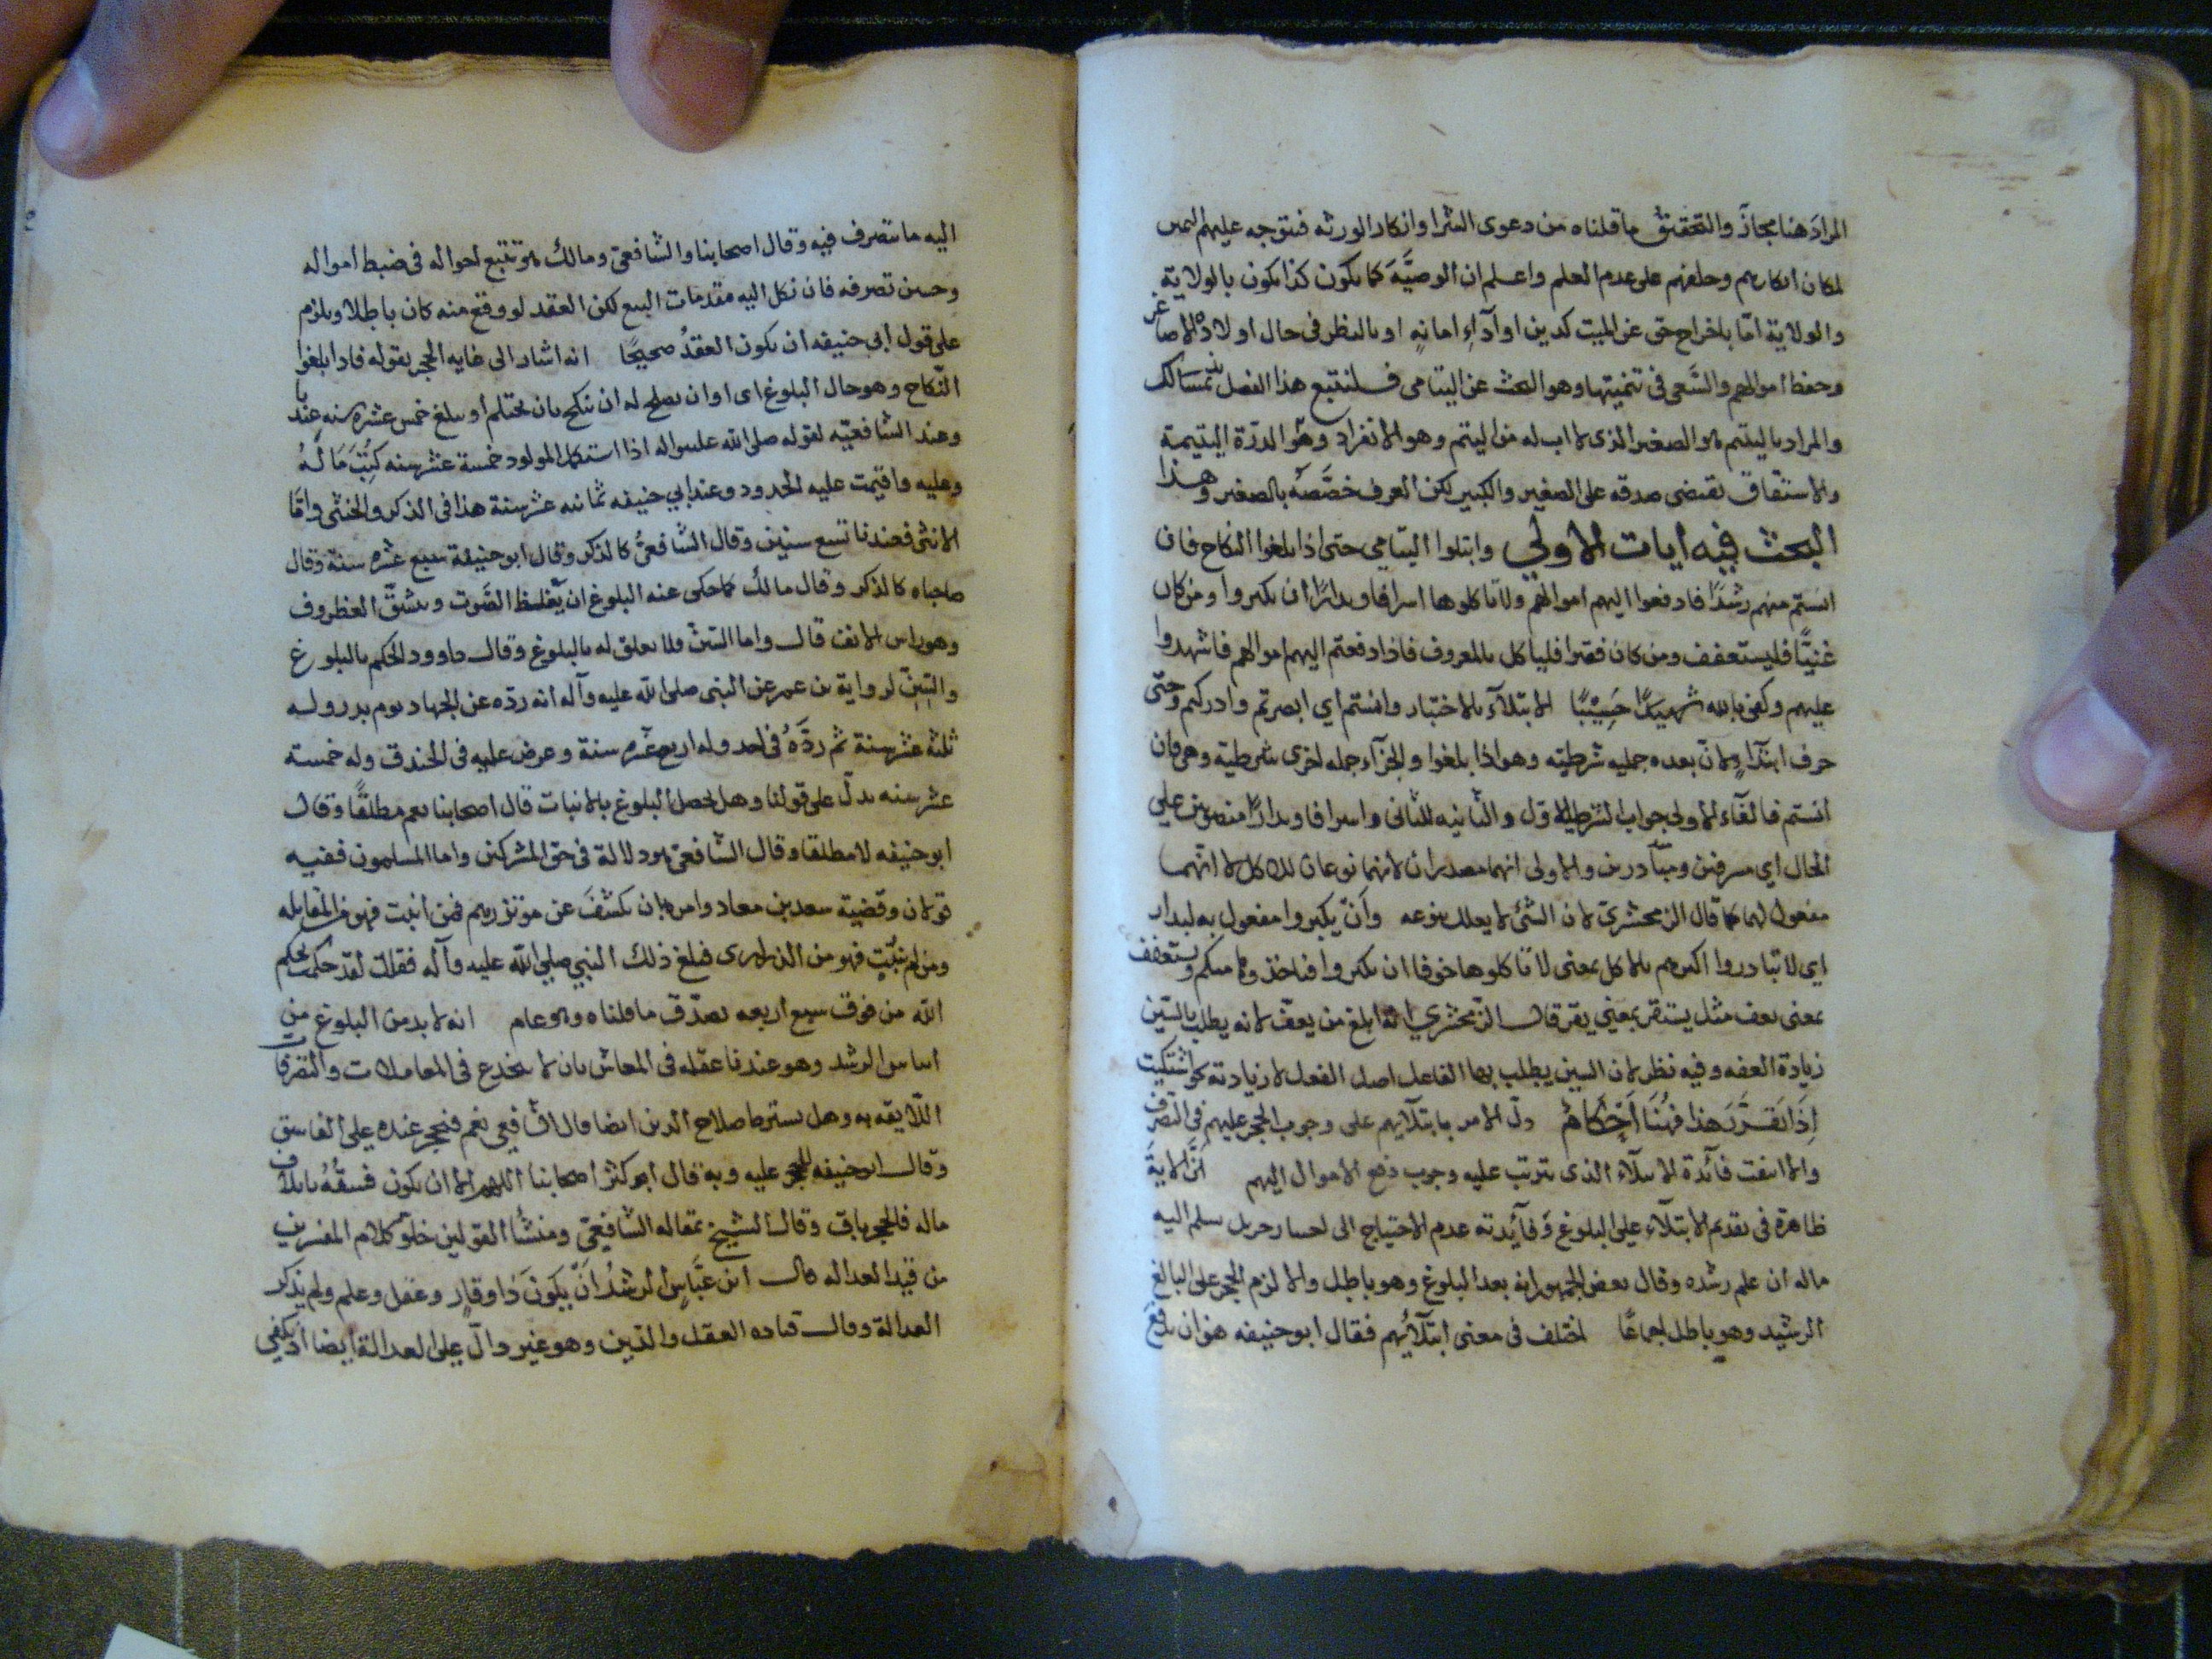 المرادَ هنا مجازٌ والتحقيقُ ما قلناه من دعوى الشرا وانكار الورثه فتوجه عليهم اليمين
لمكان انكارهم وحلفهم على عدم العلم واعلم ان الوصيَّةَ كما يكون كذا يكون بالولاية
والولاية امّا باخراج حق عن الميت كدين او آداءِ امانهٍ او بالنظر فى حال اولاده الاصاغر
وحفظ اموالهم والسَّعى فى تنميتها وهو البحث عن اليتامى فلنتبع هذا الفصل بذلك
والمراد باليتم هو الصغير الذى لا اب له من اليتم وهو الانفراد وهو الدرّة اليتيمة
والاشتقاق يقتضى صدقه على الصغير والكبير لكن العرف خصَّصهُ بالصغير وهذا
البحث فيه ايات الاولي وابتلوا اليتامي حتى اذا بلغوا النكاح فان
انستم منهم رشدًا فادفعوا اليهم اموالهم ولا تاكلوها اسرافا وبدارًا ان يكبروا ومن كان
غنيًّا فليستعفف ومن كان فقيرا فلياكل بالمعروف فاذا دفعتم اليهم اموالهم فاشهدوا
عليهم وكفى بالله شهيدًا حَسِيْبًا الابتلآء بالاختبار وانستم اي ابصرتم وادركتم وحتى
حرف ابتدآءٍ لانّ بعده جمليه شرطيته وهو اذا بلغوا والجزآء جمله اخرى شرطيه وهى فان
انستم فالفآء الاولى جواب الشرط الاول والثانيه للثانى واسرافا وبدارًا منصوبين على
الحال اي مسرفين ومبآدرين والاولى انهما مصدران لانهما نوعان للاكل لا انّهما
مفعول لهما كما قال الزمخشرىّ لان الشئ لا يعلل بنوعه وانّ يكبروا مفعول به لبدارا
اي لا تبادروا اكبرهم بالاكل بمعنى لا تاكلوها خوفا ان يكبروا فياخذوها منكم ويستعفف
بمعنى يعف مثل يستقر بمعنى يقر قال الزّمخشري انه ابلغ من يعفّ لانه يطلب بالسّين
زيادة العفه وفيه نظر لان السين يطلب بها الفاعل اصل الفعل لا زيادته نحو استكتبت
إِذَا تقَرَّرَ هذا فهُنَا أَحْكامٌ دلّ الامر بابتلآيهم على وجوب الحجر عليهم في التصرف
والا انتفت فآئدة الابتلاء الذى يترتب عليه وجوب دفع الاموال اليهم انّ الايةَ
ظاهرة فى تقديم الابتلآء على البلوغ وَفآئدته عدم الاحتياج الى اختبار اخر بل يسلم اليه
ماله ان علم رشده وقال بعض الجمهور انه بعد البلوغ وهو باطل والا لزم الحجر على البالغ
الرشيد وهو باطل اجماعًا اختلف فى معنى ابتلآئهم فقال ابو حنيفه هو ان يدفع
اليه ما يتصرف فيه وقال اصحابنا والشّافعىّ ومالك هو تتبع احواله فى ضبط امواله
وحسن تصرفه فان نكل اليه مقدمات البيع لكن العقد لو وقع منه كان باطلا ويلزم
على قول ابى حنيفه ان يكون العقدُ صحيحًا انه اشار الى غايه الحجر بقوله فاذا بلغوا
النّكاح وهو حال البلوغ اى اوان يصلح له ان ينكح بان يحتلم او يبلغ خمس عشره سنه عندنا
وعند الشافعيّه لقوله صلى الله عليه واله اذا استكمل المولود خمسة عشر سنه كُتِبَ مَا لَهُ
وعليه واقيمت عليه الحدود وعند ابي حنيفه ثمانيه عشر سنة هذا فى الذكر والخنثى وامّا
الانثى فعندنا تسع سنين وقال الشّافعىُّ كالذكر وقال ابو حنيفة سبع عشره سنة وقال
صاحباه كالذكر وقال مالك كما حكى عنه البلوغ ان يُغلظ الصَّوت وينشقّ الغظروف
وهو راس الانف قال واما السّنّ فلا تعلق له بالبلوغ وقال داوود لاحكم بالبلوغ
والسِّنِّ لرواية بن عمر عن النبى صلى الله عليه وآله انه ردّه عن الجهاد يوم بدر وله
ثلثه عشر سنة ثم ردَّهُ فى احد وله اربع عشره سنة وعرض عليه فى الخندق وله خمسته
عشر سنه يدلّ على قولنا وهل يحصل البلوغ بالانبات قال اصحابنا نعم مطلقًا وقال
ابو حنيفه لا مطلقا وقال الشّافعىّ هو دلالة فى حق المشركين واما المسلمون ففيه
قولان وقضية سعد بن معاد وامره بان يكشفَ عن مؤتزرهم فمن انبت فهو من المقاتله
ومن لم ينبُت فهو من الذرارى فبلغ ذلك النبي صلي اللّه عليه وآله فقال لقد حكمت بحكم
اللّه من فوق سبع أربعه يصدّق ما قلناه وهو عام انه لابد من البلوغ من
ايناس الرشد وهو عندنا عقله فى المعاش بان لا ينخدع فى المعاملات والتصرفات
اللّايقه به وهل يشترط صلاح الدين ايضا قال الشّافعى نعم فيحجر عنده على الفاسق
وقال ابو حنيفه لا يحجر عليه وبه قال اكثر اصحابنا اللهم الا ان يكون فسقُهُ باتلاف
ماله فالحجر باق وقال الشيخ بمقاله الشّافعىّ ومنشأ القولين خلوّ كلام المفسرين
من قيد العداله قال ابن عبَّاسٍ الرشدُ انّ يكونَ ذا وقارٍ وعقل وعلم ولم يذكر
العدالة وقال قتاده العقل والدّين وهو غير دالّ على العدالة ايضا اذ يكفي